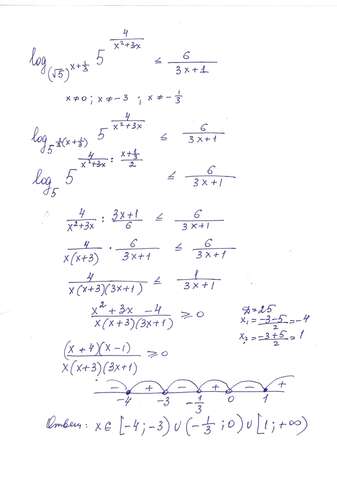 log_{(√5)^{x+1/3}} 5^{4/(x²+3x)} ≤ 6/(3x+1)
x≠0; x≠-3 ; x≠-1/3
log_{5^{1/2(x+1/3)}} 5^{4/(x²+3x)} ≤ 6/(3x+1)
log_5 5^{4/(x²+3x) : (x+1/3)/2} ≤ 6/(3x+1)
4/(x²+3x) : (3x+1)/6 ≤ 6/(3x+1)
4/(x(x+3)) · 6/(3x+1) ≤ 6/(3x+1)
4/(x(x+3)(3x+1)) ≤ 1/(3x+1)
(x²+3x-4)/(x(x+3)(3x+1)) ≥ 0
D=25
x₁=(-3-5)/2=-4
x₂=(-3+5)/2=1
((x+4)(x-1))/(x(x+3)(3x+1)) ≥ 0
- + - + - +
-4 -3 -1/3 0 1
Ответ: x∈[-4;-3)∪(-1/3;0)∪[1;+∞)